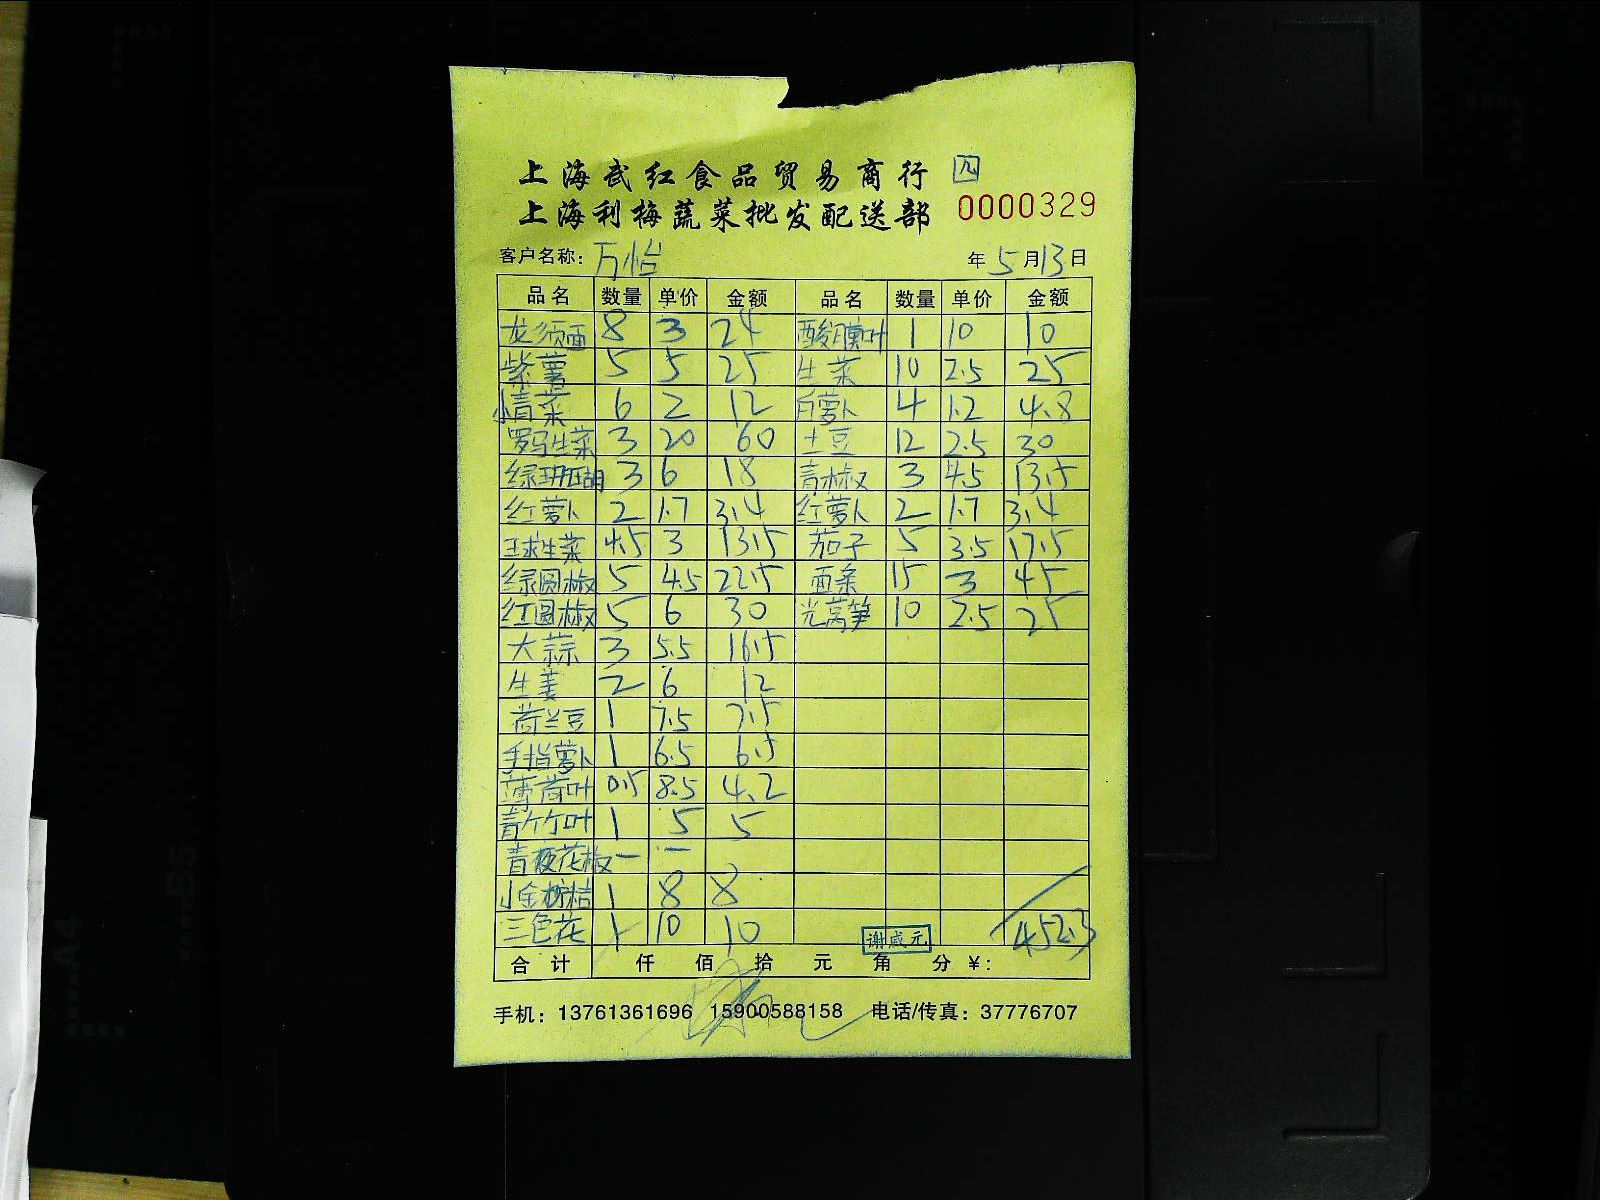 上海武红食品贸易商行
上海利梅蔬菜批发配送部 0000329
客户名称: 万怡 年 5 月 13 日
品名 数量 单价 金额 品名 数量 单价 金额
龙须面 8 3 24 酸膜叶 1 10 10
紫薯 5 5 25 生菜 10 2.5 25
小青菜 6 2 12 白萝卜 4 1.2 4.8
罗马生菜 3 20 60 土豆 12 2.5 30
绿珊瑚 3 6 18 青椒 3 4.5 13.5
红萝卜 2 1.7 3.4 红萝卜 2 1.7 3.4
球生菜 4.5 3 13.5 茄子 5 3.5 17.5
绿圆椒 5 4.5 22.5 面条 15 3 45
红圆椒 5 6 30 光莴笋 10 2.5 25
大蒜 3 5.5 16.5
生姜 2 6 12
荷兰豆 1 7.5 7.5
手指萝卜 1 6.5 6.5
薄荷叶 0.5 8.5 4.2
青竹叶 1 5 5
青梗花椒 一 一
小金桔 1 8 8
三色花 1 10 10 谢咸元 452.3
合计 仟 佰 拾 元 角 分 ¥:
手机: 13761361696 15900588158 电话/传真: 37776707